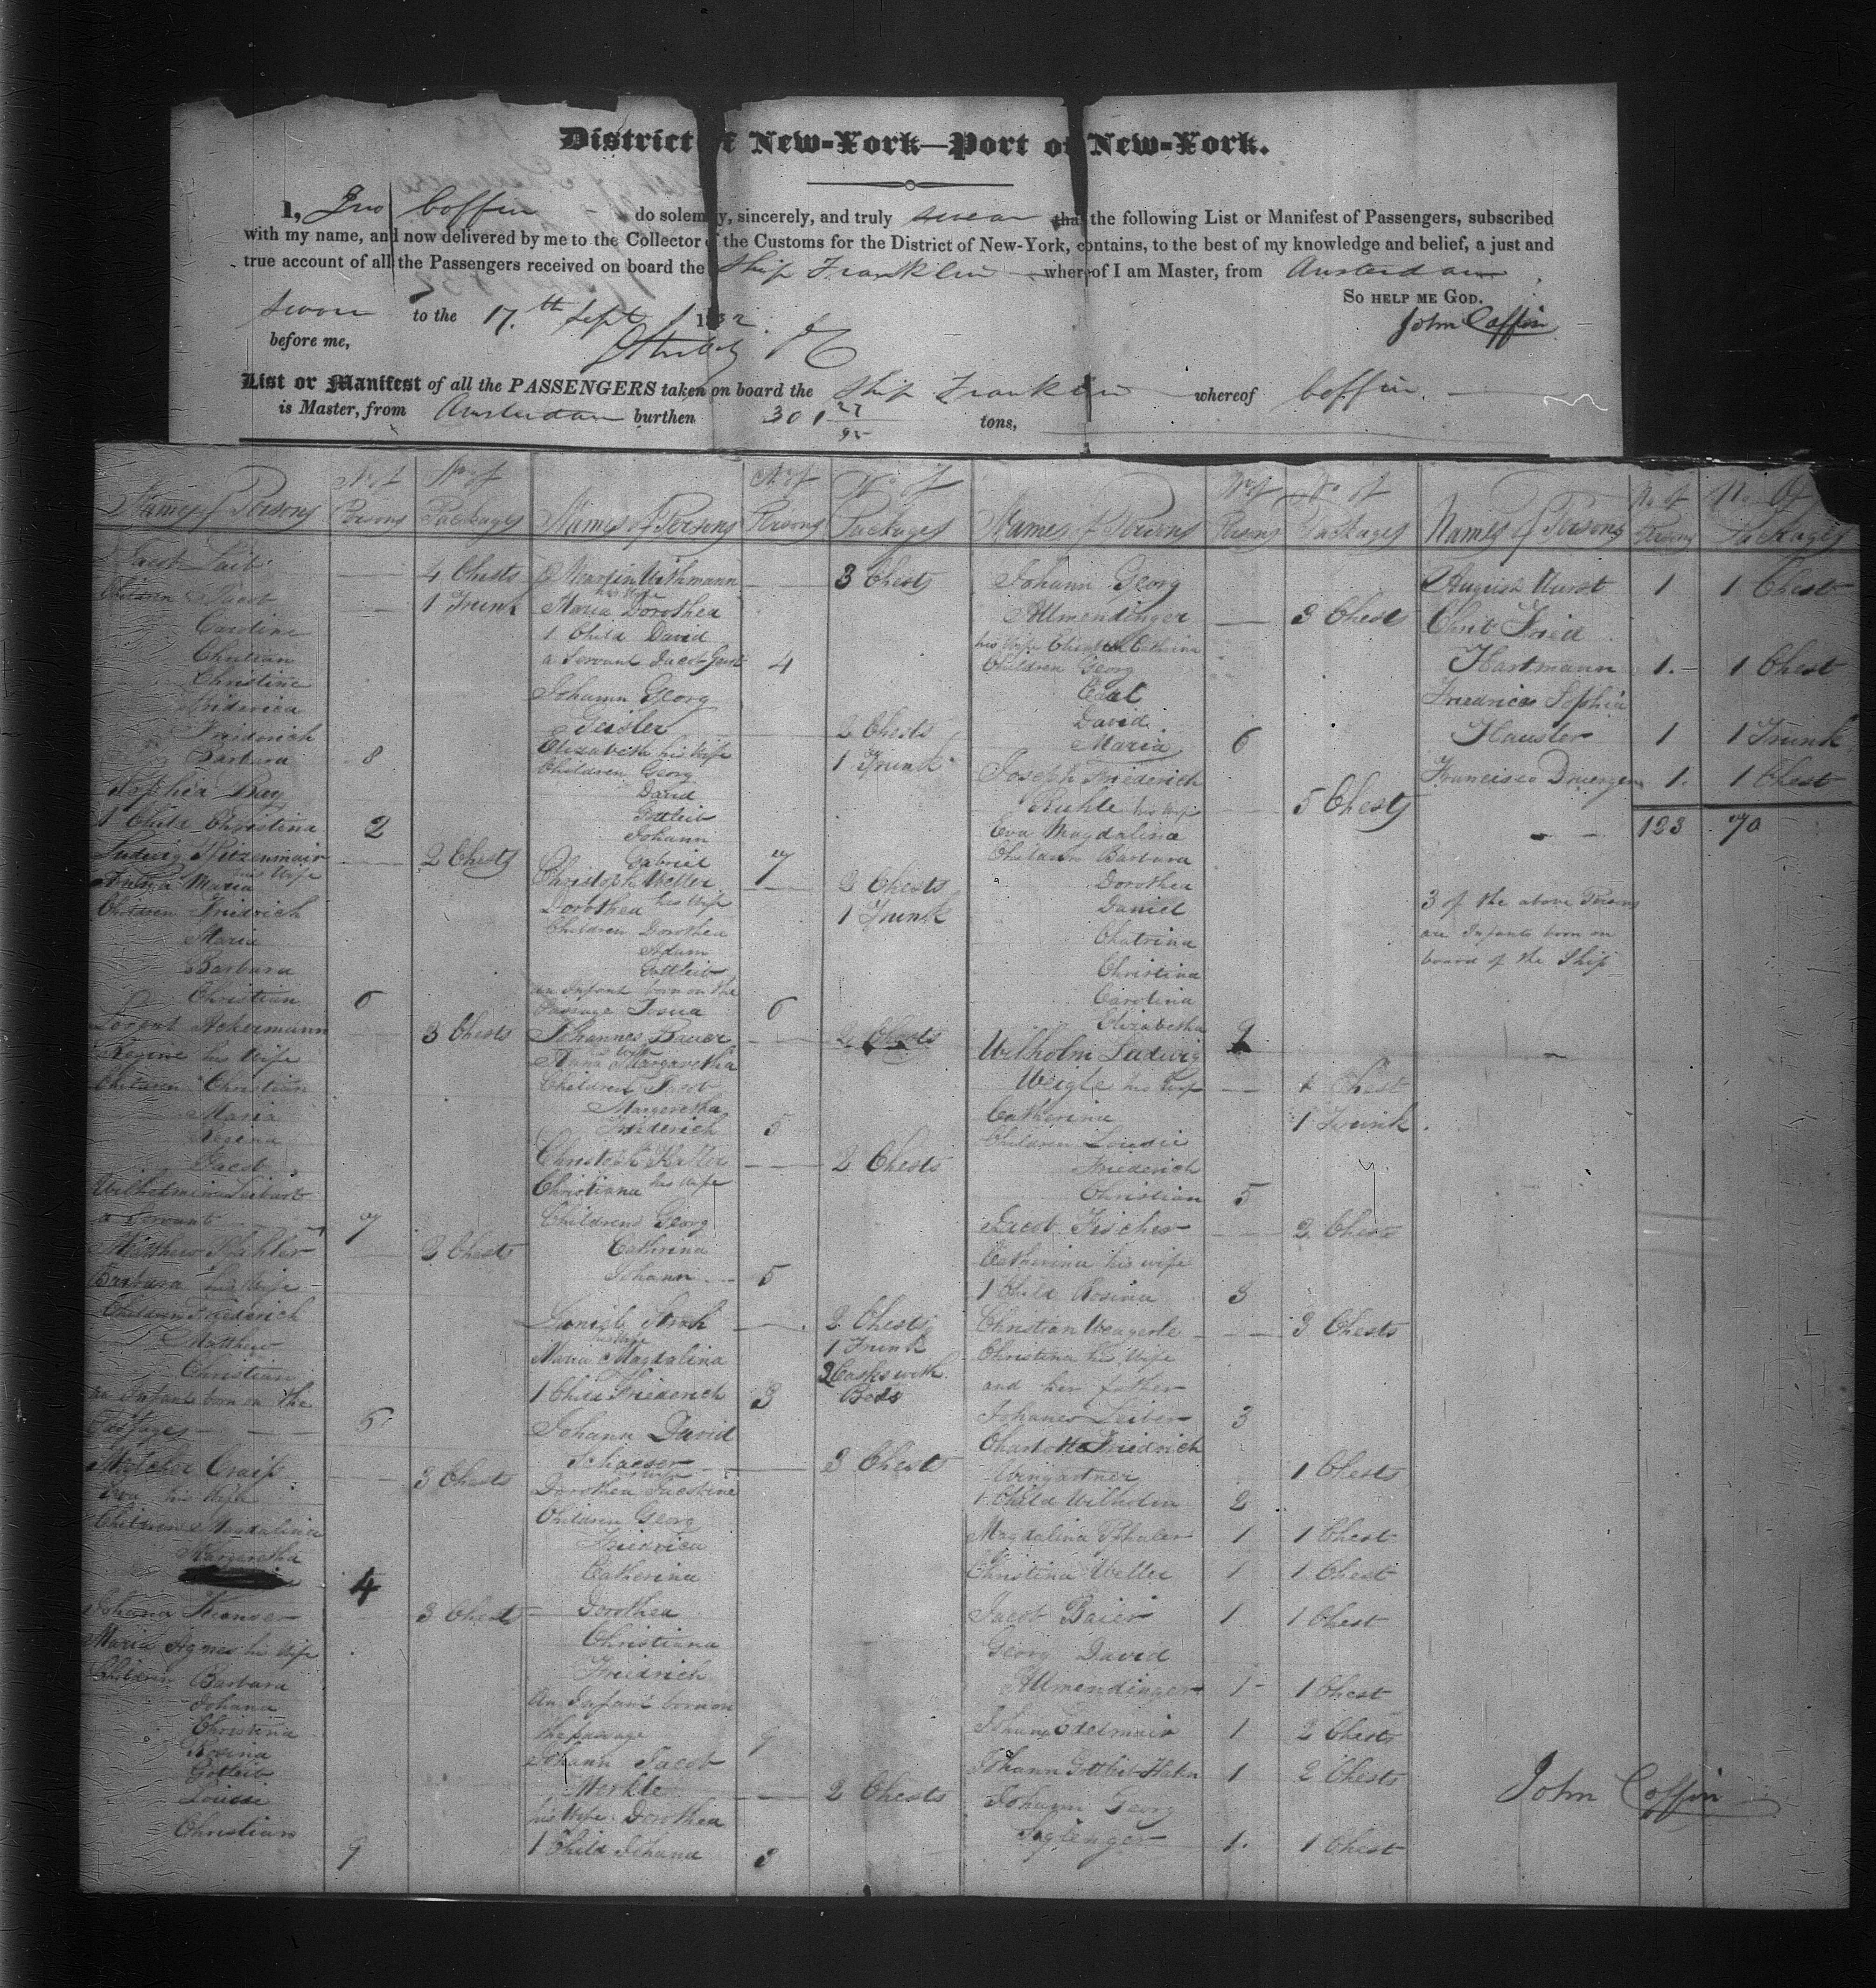 District of New-York—Port of New-York.
I, Jno Coffin do solemnly, sincerely, and truly swear that the following List or Manifest of Passengers, subscribed
with my name, and now delivered by me to the Collector of the Customs for the District of New-York, contains, to the best of my knowledge and belief, a just and
true account of all the Passengers received on board the Ship Franklin whereof I am Master, from Amsterdam
So HELP ME GOD.
Sworn to the 17th Sept 1832.
John Coffin
before me,
List or Manifest of all the PASSENGERS taken on board the Ship Franklin whereof Coffin.
is Master, from Amsterdam burthen 301 27/95 tons,
Names of Persons
No of Persons
No of Packages
Jacob 4 Chests
Children Jacob 1 Trunk
Caroline
Christian
Christine
Friderica
Friderich
Barbara 8
Sophia
1 Child Christina 2
Ludwig 2 Chests
Anna Maria his Wife
Children Friedrich
Maria
Barbara
Christian 6
Ackermann 3 Chests
Regine his Wife
Children Christian
Maria
Regina
Jacob
Wilhelmina
a Servant 7
Matthew 2 Chests
Barbara his Wife
Children Friederich
Matthew
Christian
an Infant born on the
Passage
Melchor 3 Chests
Eva his Wife
Children Magdalina
Margaretha
4
Johana 3 Chests
Maria Agnes his Wife
Children Barbara
Johana
Christina
Rosina
Gotleib
Louisi
Christian
9
Names of Persons
No of Persons
No of Packages
Martin Withmann 3 Chests
his Wife
Maria Dorothea
1 Child David
a Servant Jacob 4
Johann Georg
Geisler 2 Chests
Elizabeth his Wife 1 Trunk
Children Georg
David
Gottleib
Johann
Gabriel 7
Christoph Weller 3 Chests
Dorothea his Wife 1 Trunk
Children Dorothea
Adam
Gottleib
an Infant born on the
Passage 6
Johannes Bauer 2 Chests
his Wife
Anna Margaretha
Children Jacob
Margeretha
Friderich 5
Christoph 2 Chests
Christiana his Wife
Children Georg
Cathrina
Johann 5
2 Chests
his Wife 1 Trunk
Maria Magdalina 3 Casks with
1 Child Friederich 3 Beds
Johann David
Schaeser 3 Chests
his Wife
Dorothea
Children Georg
Friedrica
Catherina
Dorothea
Christiana
Freidrich
An Infant born on
the passage 9
Johann Jacob
Merkle 2 Chests
his Wife Dorothea
1 Child Johana 3
Names of Persons
No of Persons
No of Packages
Johann Georg
Allmendinger 3 Chests
his Wife Elizabeth Cathrina
Children Georg
Carl
David
Maria 6
Joseph Friederich
Ruhle his Wife 5 Chests
Eva Magdalina
Children Barbara
Dorothea
Daniel
Chatrina
Christina
Carolina
Elizabetha 9
Wilholm Ludwig
Weigle his Wife 1 Chest
Catherina 1 Trunk
Children Louisi
Friederich
Christian 5
Jacob Fischer 2 Chests
Catherina his wife
1 Child Rosina 3
Christian Weagerle 3 Chests
Christina his Wife
and her father
Johanes Leiber 3
Charlotte Friedrich
Wingartner 1 Chests
1 Child Wilholm 2
Magdalina Pfhuler 1 1 Chest
Christina Weller 1 1 Chest
Jacob Baier 1 1 Chest
Georg David
Allmendinger 1 1 Chest
Johann Edelmair 1 2 Chests
Johann Gottleib Hahn 1 2 Chests
Johann Georg
1 1 Chest
Names of Persons
No of Persons
No Of Packages
August Wurst 1 1 Chest
Christ Fried
Hartmann 1 1 Chest
Friedrica Sophia
Hausler 1 1 Trunk
Francisco 1 1 Chest
123 70
3 of the above Persons
are Infants born on
board of the Ship
John Coffin